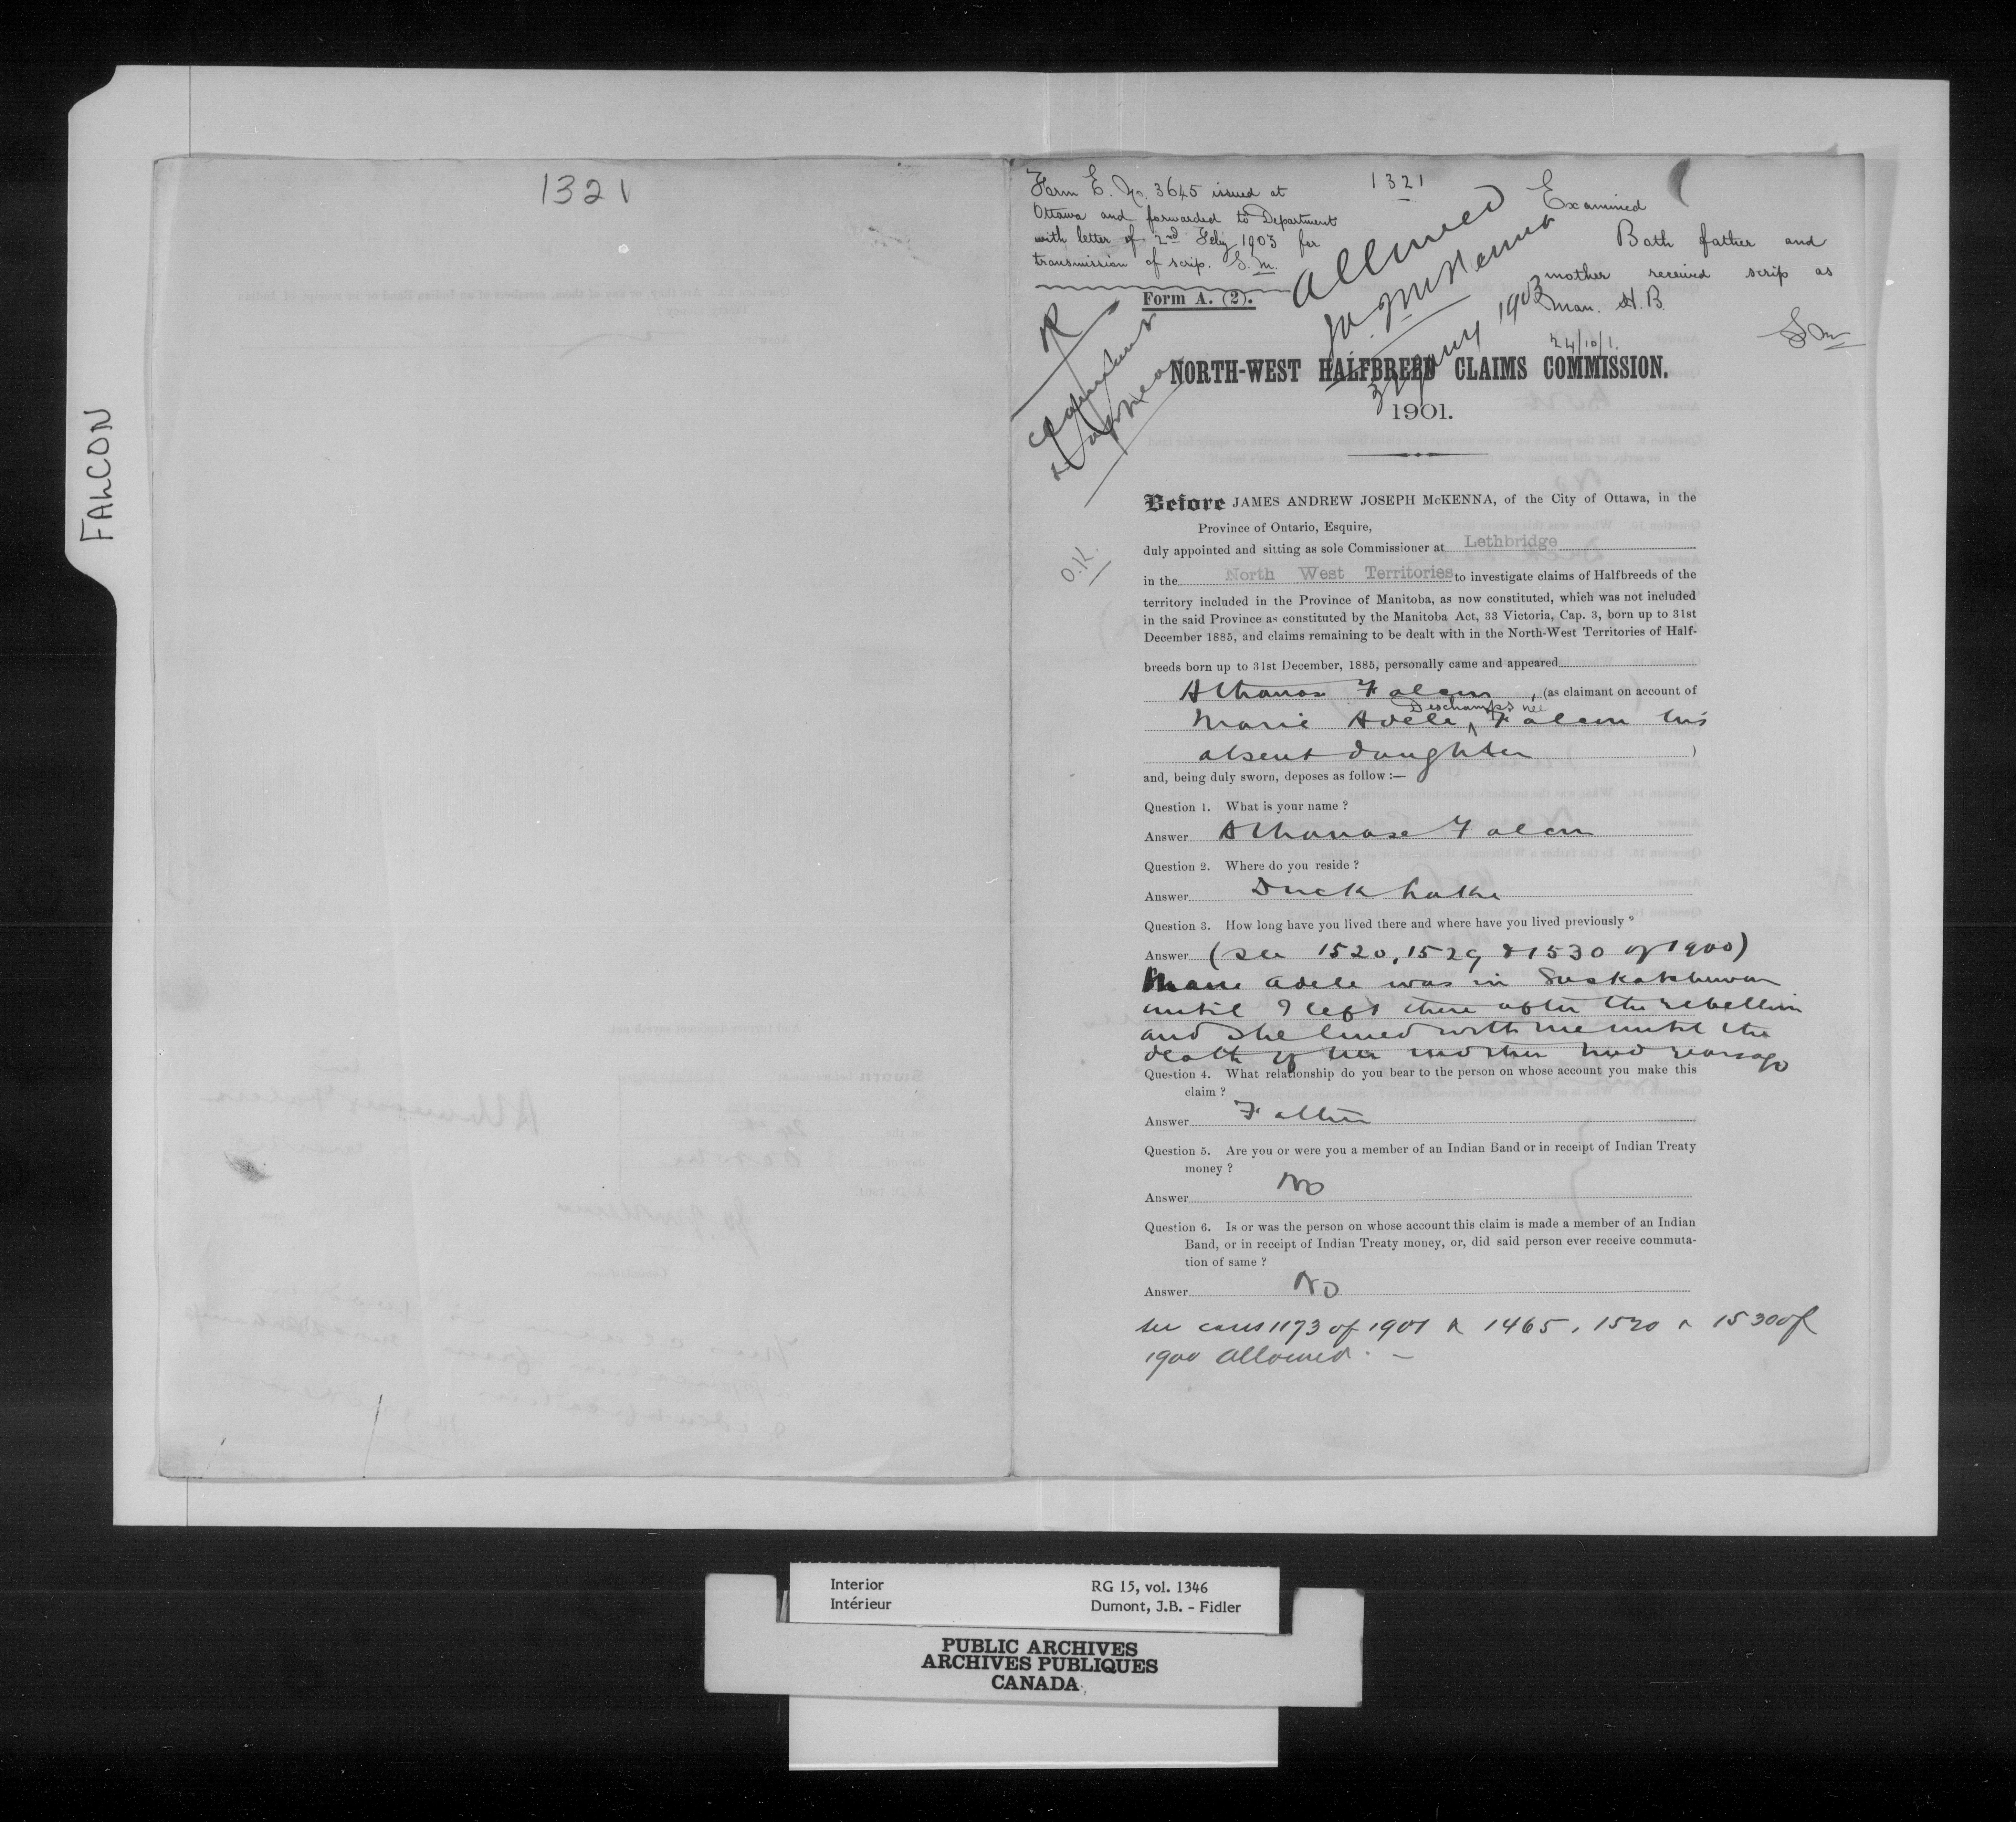 FALCON
1321
Form E. No. 3645 issued at
Ottawa and forwarded to Department
with letter of 2nd Feby 1903 for
transmission of scrip. S. M.
1321
Allowed
J.A.J. McKenna
31 Jany 1903
Examined
Both father and
mother received scrip as
Man. H. B.
24/10/1.
O.K.
Form A. (2).
NORTH-WEST HALFBREED CLAIMS COMMISSION.
1901.
Before JAMES ANDREW JOSEPH McKENNA, of the City of Ottawa, in the
Province of Ontario, Esquire,
duly appointed and sitting as sole Commissioner at Lethbridge
in the North West Territories to investigate claims of Halfbreeds of the
territory included in the Province of Manitoba, as now constituted, which was not included
in the said Province as constituted by the Manitoba Act, 33 Victoria, Cap. 3, born up to 31st
December 1885, and claims remaining to be dealt with in the North-West Territories of Half-
breeds born up to 31st December, 1885, personally came and appeared
Athanase Falcon, (as claimant on account of
Marie Adele Deschamps nee Falcon his
absent daughter )
and, being duly sworn, deposes as follow :—
Question 1. What is your name ?
Answer Athanase Falcon
Question 2. Where do you reside ?
Answer Duck Lake
Question 3. How long have you lived there and where have you lived previously ?
Answer (see 1520, 1529 & 1530 of 1900)
Marie Adele was in Saskatchewan
until I left there after the rebellion
and she lived with me until the
death of her mother two years ago
Question 4. What relationship do you bear to the person on whose account you make this
claim ?
Answer Father
Question 5. Are you or were you a member of an Indian Band or in receipt of Indian Treaty
money ?
Answer No
Question 6. Is or was the person on whose account this claim is made a member of an Indian
Band, or in receipt of Indian Treaty money, or, did said person ever receive commuta-
tion of same ?
Answer No
See cases 1173 of 1901 & 1465, 1520 & 1530 of
1900 allowed. —
Interior
Intérieur
RG 15, vol. 1346
Dumont, J.B. - Fidler
PUBLIC ARCHIVES
ARCHIVES PUBLIQUES
CANADA